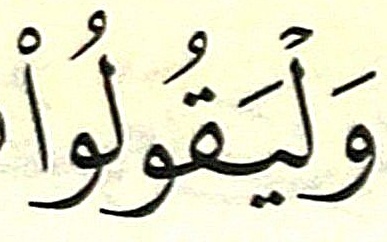 وَلْيَقُولُواْ